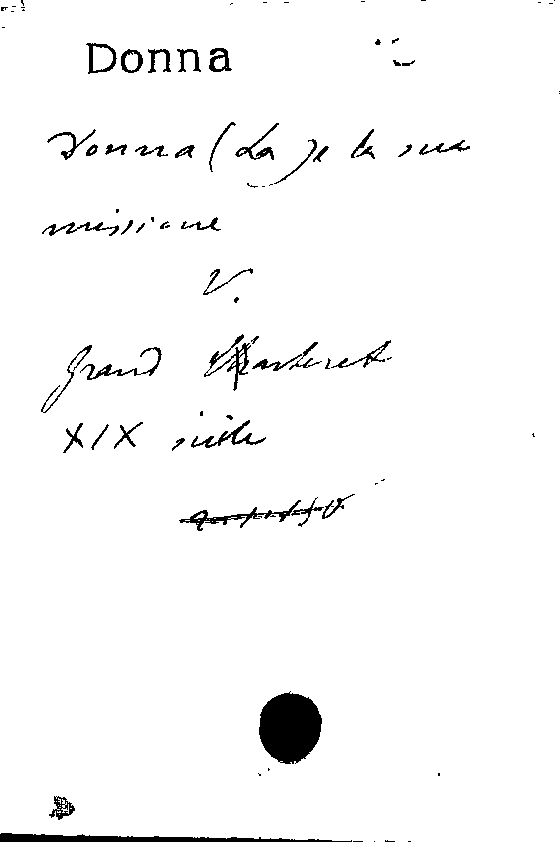 Donna
Donna (La) e la sua
missione
V.
Grand Carteret
XIX siècle